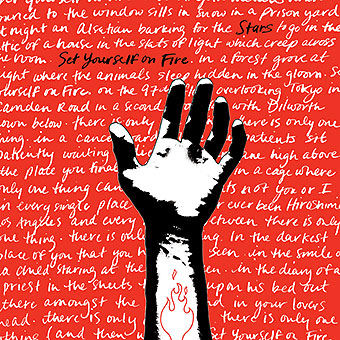 ound to the window sills in snow in a prison yard
t night an Alsatian barking for the Stars to go in the
ttic of a house in the slats of light which creep across
he room. Set Yourself on Fire. in a forest grove at
ight where the animals sleep hidden in the gloom. Se
urself on Fire on the 97th overlooking Tokyo in
Camden Road in a second with Dilworth
own below. there is only is only one
hing. in a cance patients sit
patiently waiting one high above
the place you fina in a cage where
only one thing can ts not you or I
in every single place ever been Hiroshim
os Angeles and every between there is only
one thing. there is only . In the darkest
place of you that you seen. in the smile o
a child staring at the in the diary of a
priest in the sheets upon his bed but
there amongst the d in your lovers
head there is only there is only one
thing (and then Set Yourself on Fire